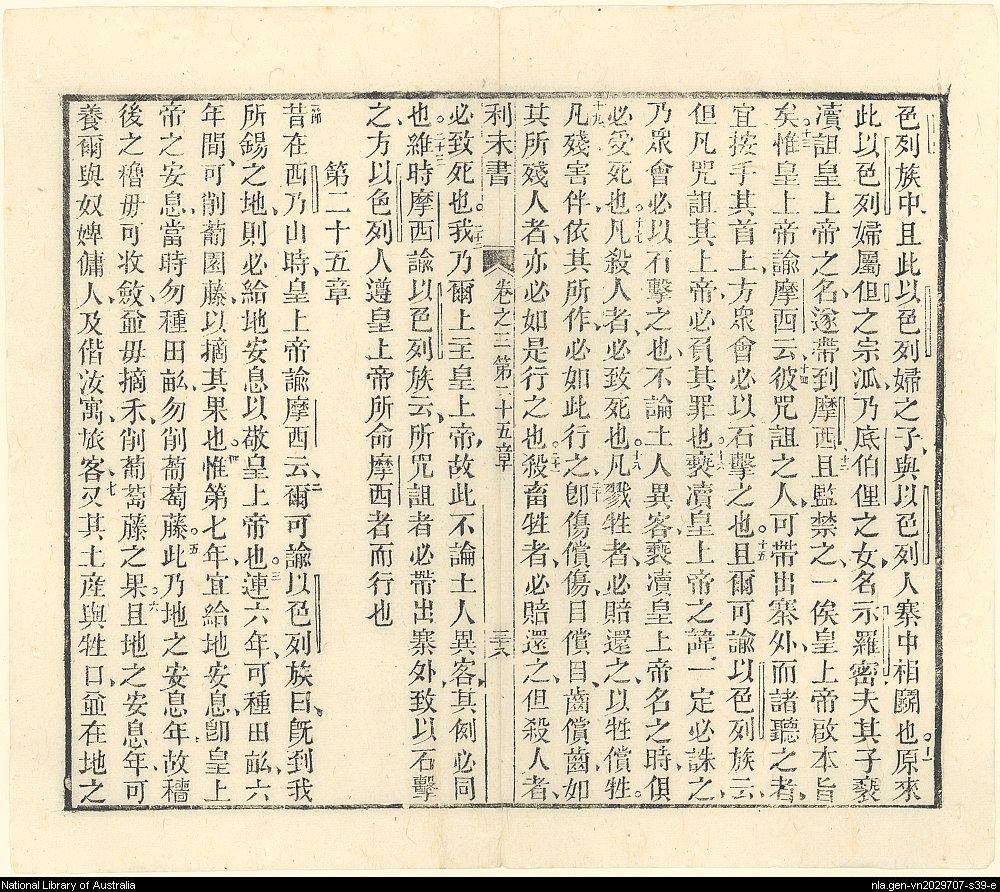 色列族中、且此以色列婦之子、與以色列人寨中相鬬也。十一原來
此以色列婦屬但之宗派、乃底伯俚之女名示羅密、夫其子褻
瀆詛皇上帝之名、遂帶到摩西、十二且監禁之、一俟皇上帝啟本旨
矣。十三惟皇上帝諭摩西云、十四彼咒詛之人、可帶出寨外、而諸聽之者、
宜按手其首上、方眾會必以石擊之也。十五且爾可諭以色列族云、
但凡咒詛其上帝、必負其罪也。十六褻瀆皇上帝之諱、一定必誅之、
乃眾會必以石擊之也、不論土人異客、褻瀆皇上帝名之時、俱
必受死也。十七凡殺人者、必致死也。十八凡戮牲者、必賠還之、以牲償牲。
十九凡殘害伴侬其所作、必如此行之。二十卽傷償傷、目償目、齒償齒、如
其所殘人者、亦必如是行之也。二十一殺畜牲者、必賠還之、但殺人者、
利未書 卷之三 第二十五章 三十六
必致死也。二十二我乃爾上主皇上帝、故此不論土人異客、其例必同
也。二十三維時摩西諭以色列族云、所咒詛者必帶出寨外、致以石擊
之、方以色列人遵皇上帝所命摩西者而行也
第二十五章
一節昔在西乃山時、皇上帝諭摩西云、二爾可諭以色列族曰、旣到我
所錫之地、則必給地安息、以敬皇上帝也。三連六年、可種田畝、六
年間、可削葡園藤、以摘其果也。四惟第七年、宜給地安息、卽皇上
帝之安息、當時勿種田畝、勿削葡萄藤。五此乃地之安息年、故穡
後之穭毋可收斂、並毋摘禾削葡萄藤之果。六且地之安息年、可
養爾與奴婢傭人、及偕汝寓旅客、七又其土產與牲口、並在地之
National Library of Australia
nla.gen-vn2029707-s39-e